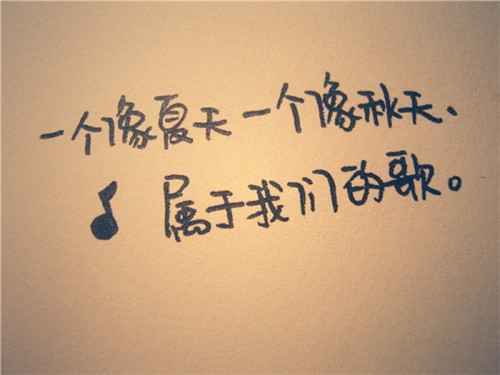 一个像夏天一个像秋天、
♪ 属于我们的歌。